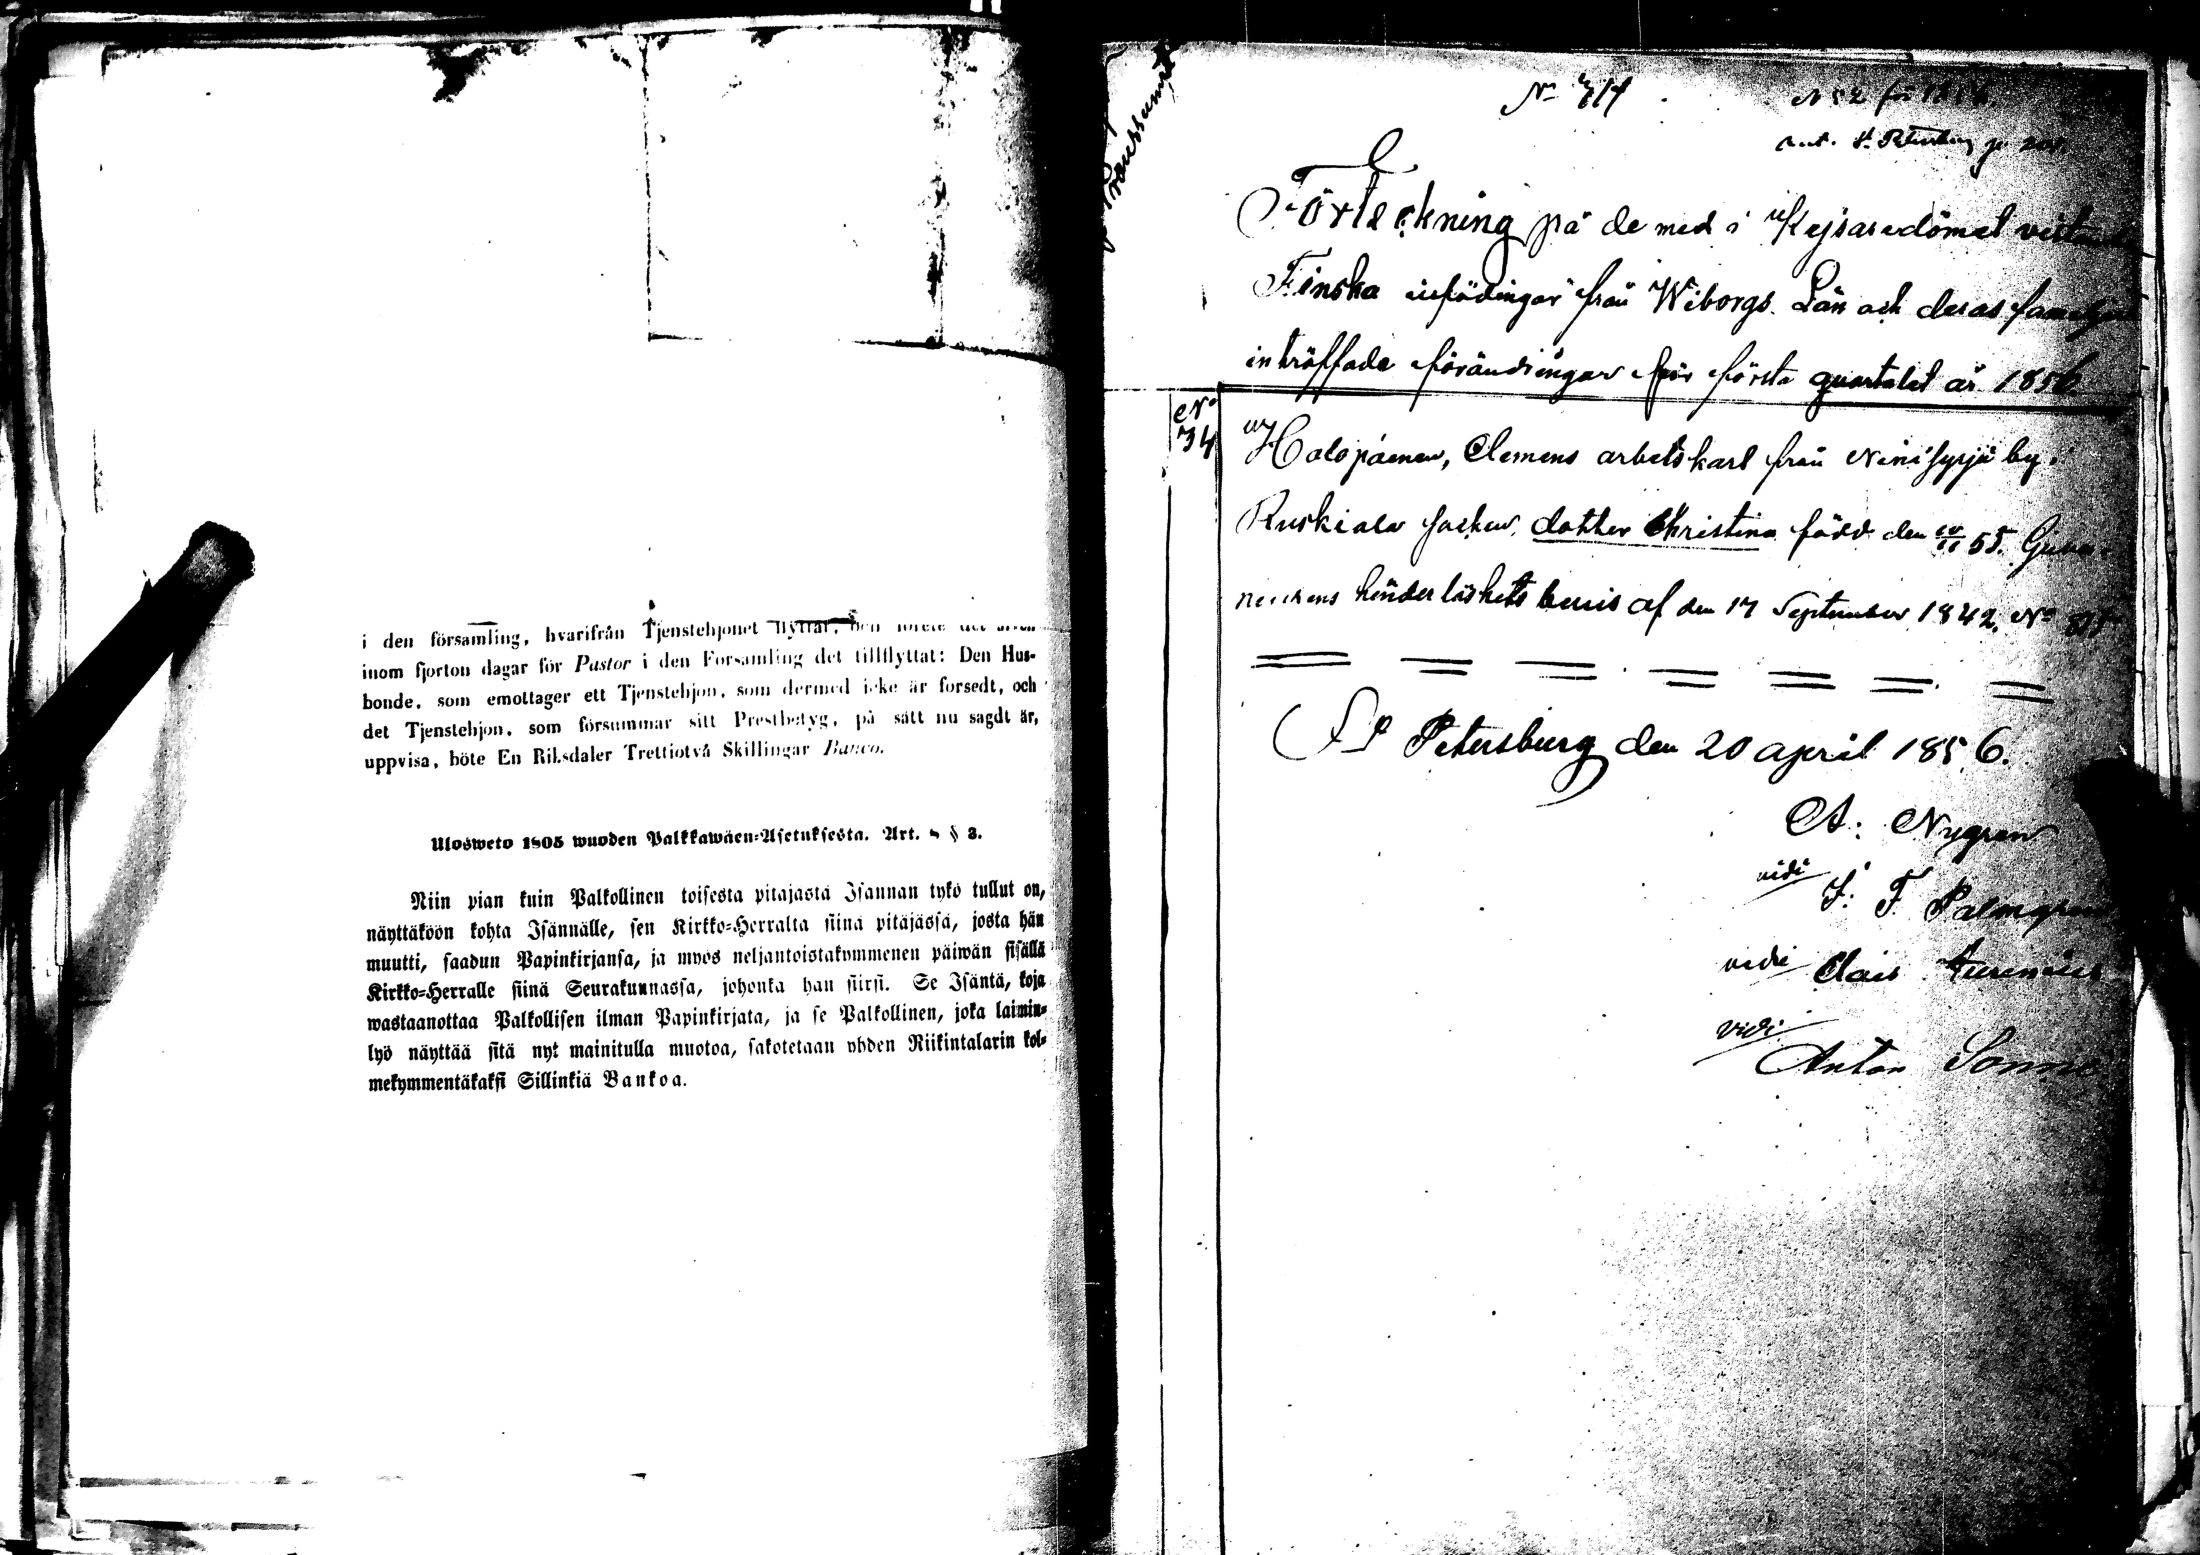 i den församling, hvarifrån Tjenstehjonet flyttar,
inom fjorton dagar för Pastor i den Församling det tillflyttat: Den Hus-
bonde, som emottager ett Tjenstehjon, som dermed icke är försedt, och
det Tjenstehjon, som försummar sitt Prestbetyg, på sätt nu sagdt är,
uppvisa, böte En Riksdaler Trettiotvå Skillingar Banco.
Ulosweto 1805 wuoden Palkkawäen-Asetuksesta. Art. § 3.
Niin pian kuin Palkollinen toisesta pitäjästä Isännän tykö tullut on,
näyttäköön kohta Isännälle, sen Kirkko-Herralta siinä pitäjässä, josta hän
muutti, saadun Papinkirjansa, ja myös neljäntoistakymmenen päiwän sisällä
Kirkko-Herralle siinä Seurakunnassa, johonka hän siirsi. Se Isäntä, koja
wastaanottaa Palkollisen ilman Papinkirjata, ja se Palkollinen, joka laimin-
lyö näyttää sitä nyt mainitulla muotoa, sakotetaan yhden Riikintalarin kol-
mekymmentäkaksi Sillinkiä Bankoa.
Nº 714
ank. St. Petersburg
Förteckning på de med i Kejsaredömet vistande
Finska infödingar från Wiborgs Län och deras familjer
inträffade förändringar för första quartalet år 1856
Nº
34
Holopainen, Clemens arbetskarl från by
Ruskiala socken, dotter Christina född den 55.
hinderlöshets bevis af den 17 September 1842. Nº
St Petersburg den 20 april 1856.
A: Nygren
vidi
F. Palmgren
vidi Clais
vidi
Anton Sonne